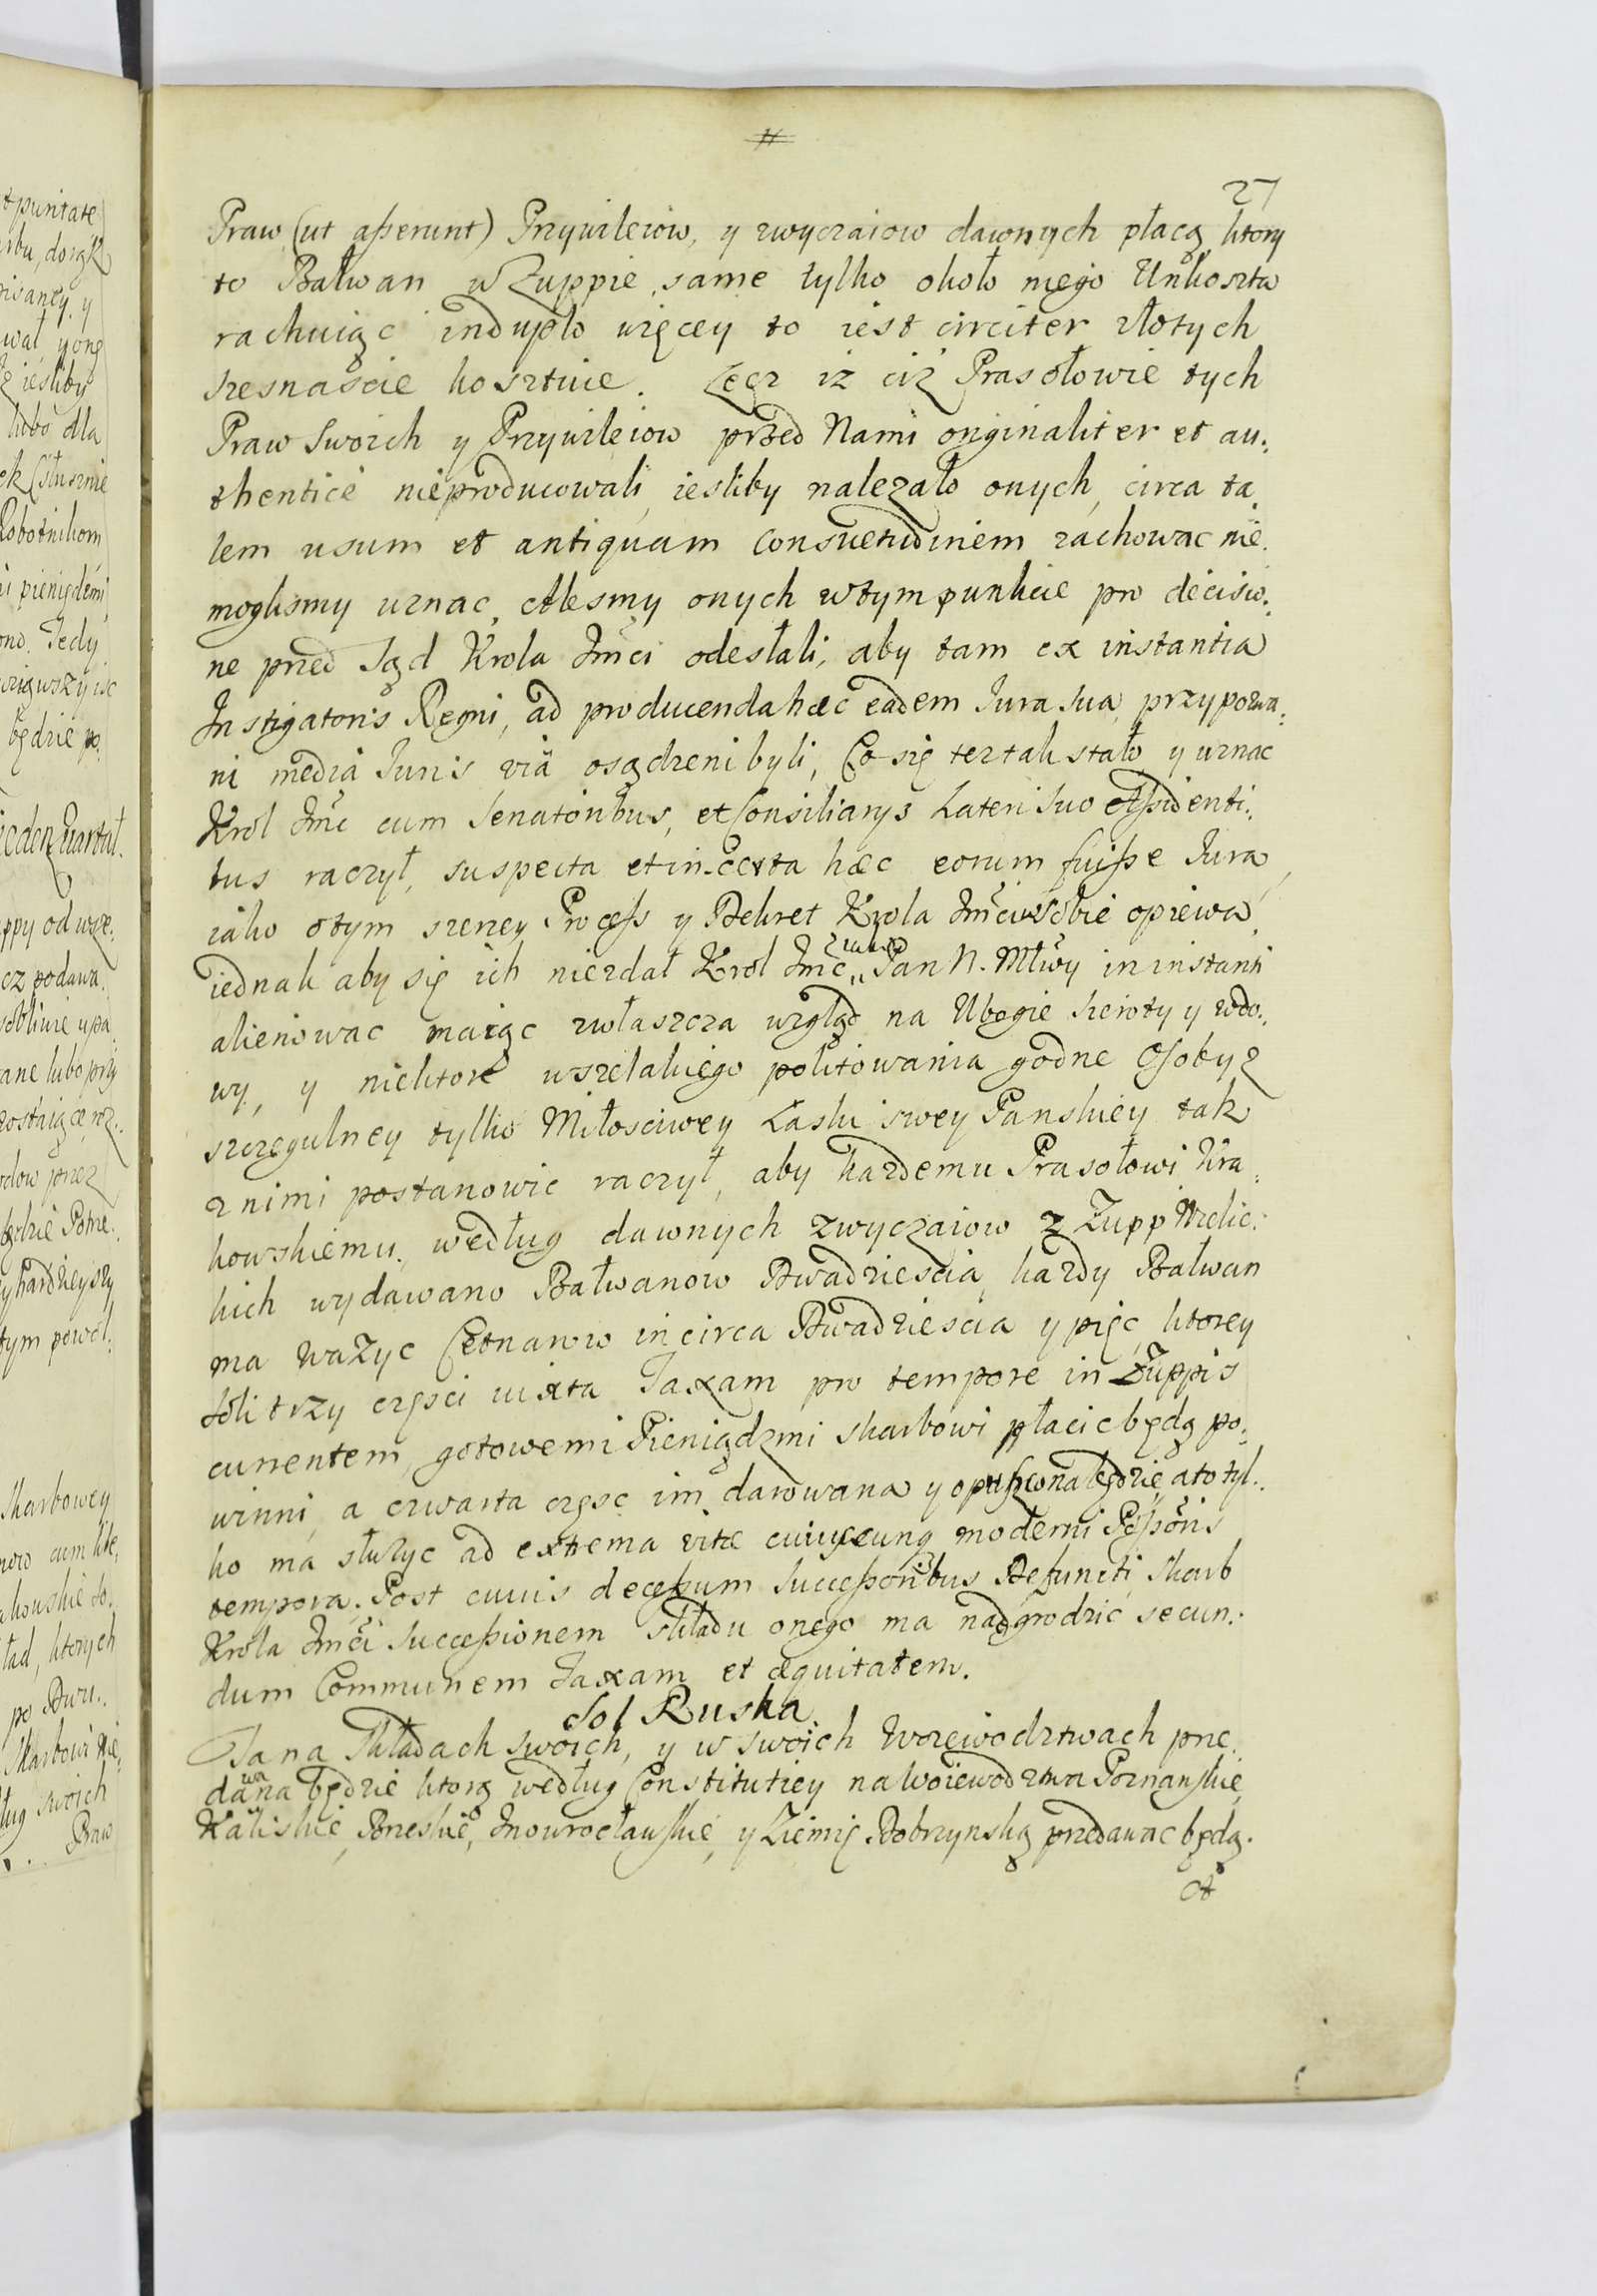 27
Praw (ut asserunt) Przywileiow, y zwyczaiow dawnych płacą, ktory
to Bałwan w Zuppie, same tylko około niego Unkoszta
rachuiąc induplo więcey to iest circiter złotych
szesnascie kosztuie. Lecz iz ciż Prasołowie tych
Praw Swoich y Przywileiow przed Nami originaliter et au:
thentice nieproducowali, iesliby nalezało onych, circa ta
lem usum et antiquam consuetudinem zachowac nie
moglismy uznac, Alesmy onych wtym punkcie pro decisio:
ne przed Sąd Krola Jmci odesłali, aby tam ex instantia
Instigatoris Regni, ad producenda hæc eadem Jura sua, przypozwa:
ni media Juris via osądzeni byli, Co się tez tak stało, y uznac
Krol Jmc cum Senatoribus, et Consiliarys Lateri suo Assidenti:
bus raczył, suspecta et incerta hæc eorum fuisse Jura,
iako otym szerzey Process y Dekret Krola Jmci w sobie opiewa,
iednak aby się ich niezdał Krol Jmc Pan N. Młwy in instanti
alienowac maiąc zwłaszcza wzgląd na Ubogie Sieroty y wdo:
wy, y niektore wszelakiego politowania godne Osoby z
szczegulney tylko Miłosciwey Łaski swey Panskiey tak
z nimi postanowic raczył, aby kazdemu Prasołowi Kra:
kowskiemu, według dawnych zwyczaiow z Zupp Wielic:
kich wydawano Bałwanow Dwadziescia, kazdy Bałwan
ma wazyc Cetnarow in circa Dwadziescia y pięc, ktorey
Soli trzy częsci iuxta Taxam pro tempore in Zuppis
currentem, gotowemi Pieniądzmi skarbowi płacic będą po:
winni, a czwarta częsc im darowana y opuszczona będzie, a to tyl:
ko ma służyc ad extrema vitæ cuiuscunq moderni Possoris
tempora, Post cuius decessum Successoribus Defuncti, Skarb
Krola Jmci Successionem składu onego ma nadgrodzic secun:
dum Communem Taxam et æquitatem.
Sol Ruska
Ta na Składach swoich, y w swoich Woiewodztwach prze
dawana będzie ktorą według Constitutiey na Woiewodztwa Poznanskie,
Kaliskie, Brzeskie, Inowrocławskie, y Ziemię Dobrzynską przedawac będą.